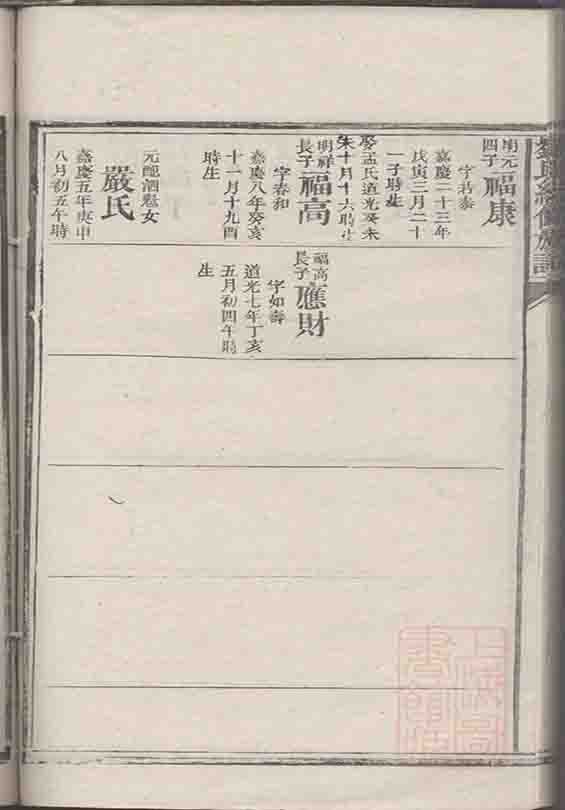 修族譜
明元
四子
福康
字泰
嘉慶二十三年
戊寅三月二十
一子時生
孟氏道光
十月十六時生
明祥
長子
福高
字春和
嘉慶八年癸亥
十一月十九酉
時生
元配泗魁女
嚴氏
嘉慶五年庚申
八月初五午時
福高
長子
應財
字如壽
道光七年丁亥
五月初四午時
生
上海圖
書館藏